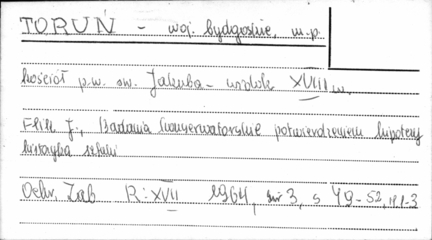 TORUŃ - woj. bydgoskie, m.p.
kościół p.w. św. Jakuba - XVIII w.
Flik J., Badania konserwatorskie potwierdzeniem hipotezy
krytyka sztuki
Ochr. Zab R: XVII 1964, nr 3, s 49-52, il. 1-3